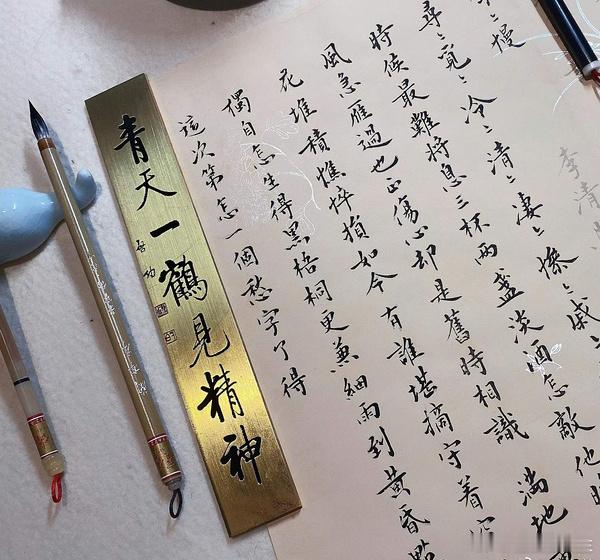 〻慢
李清
尋〻覓〻冷〻清〻淒〻慘〻戚〻
時候最難將息三杯兩盞淡酒怎敵他
風急雁過也正傷心却是舊時相識 滿地
花堆積憔悴損如今有誰堪摘守着
獨自怎生得黑梧桐更兼細雨到黃昏點
這次第怎一個愁字了得
青天一鶴見精神
啓功